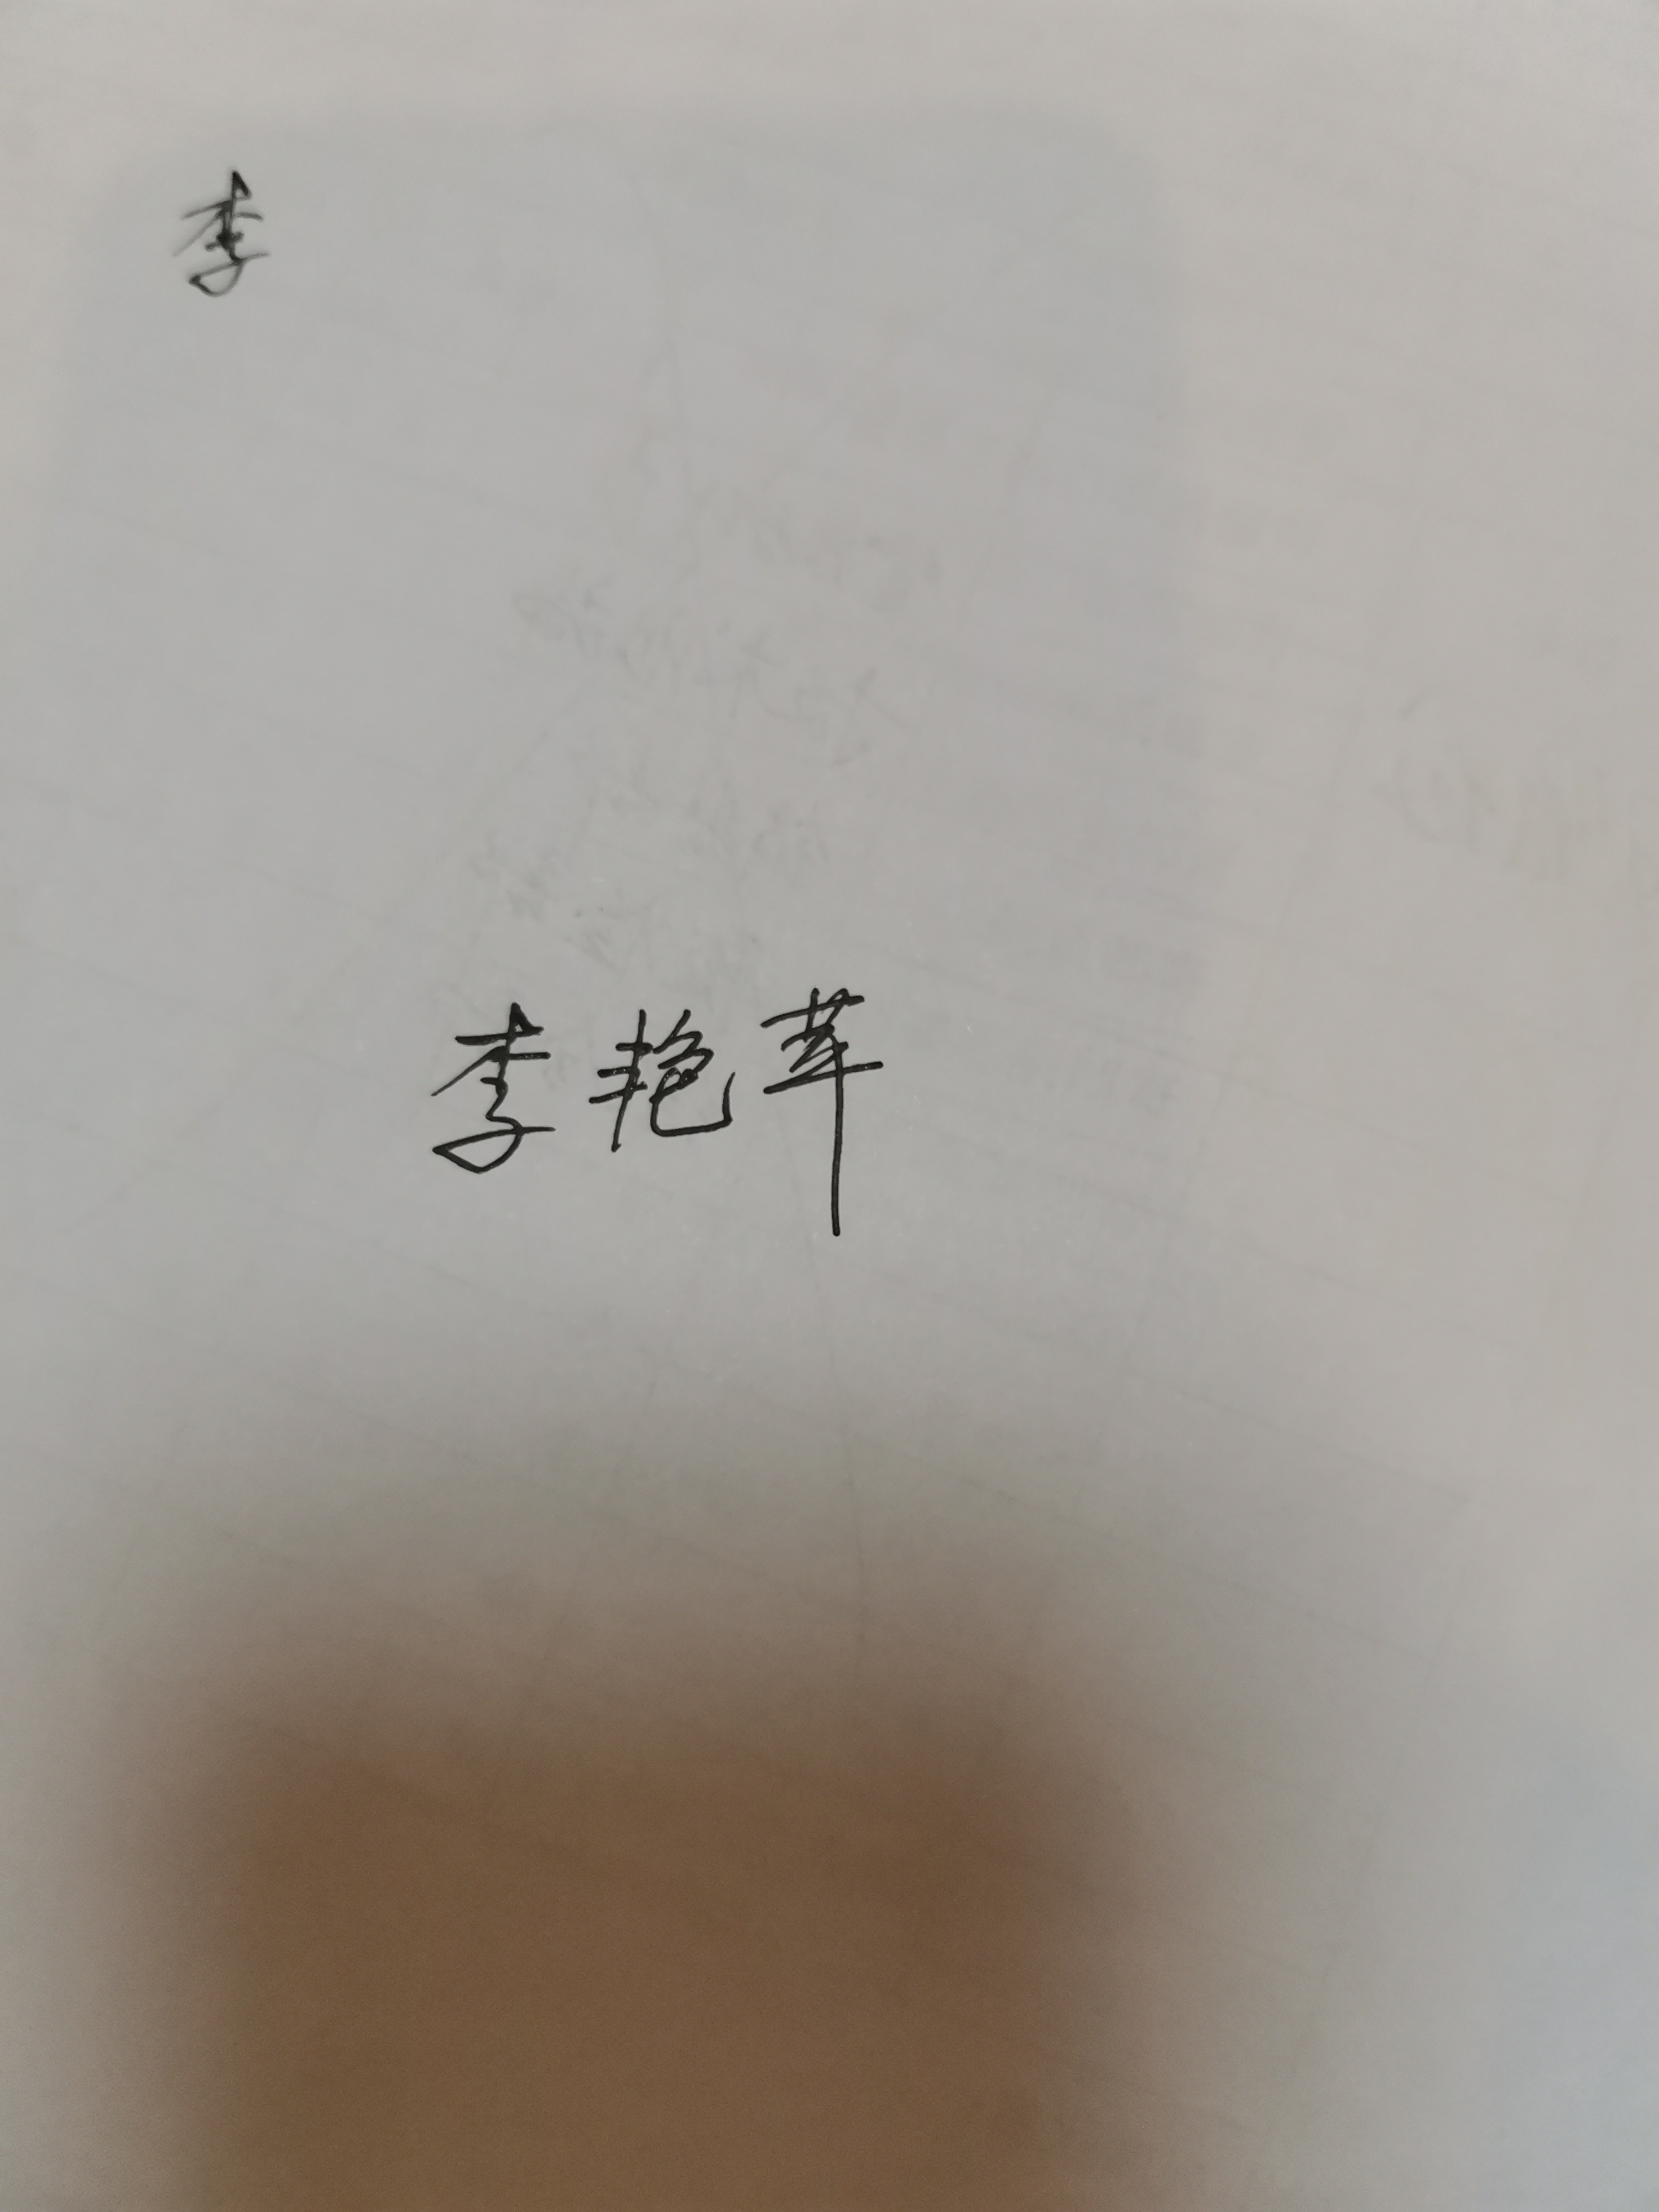 李
李艳苹